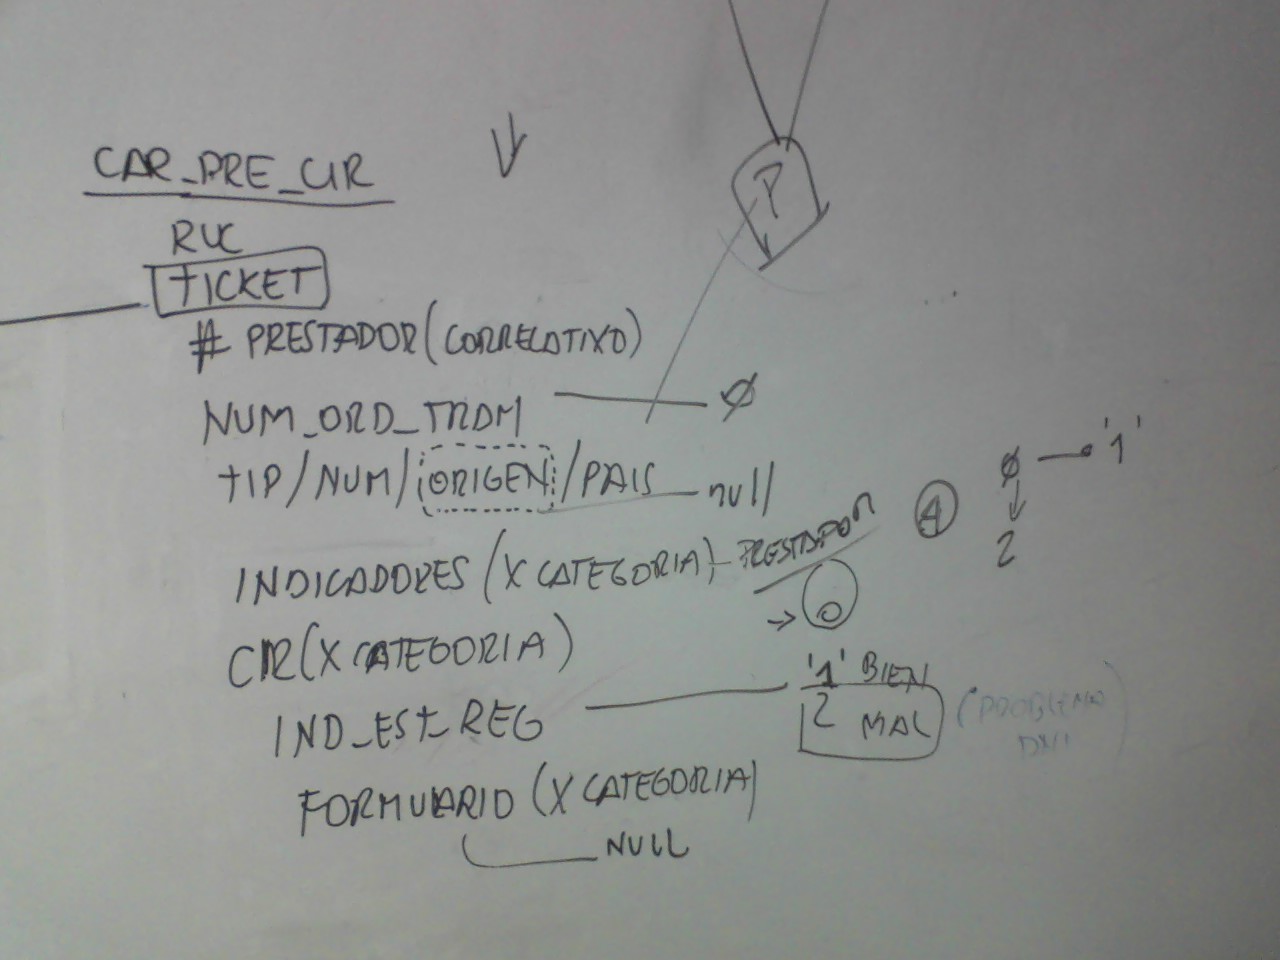 CAR_PRE_CIR
RUC
TICKET
P
# PRESTADOR (CORRELATIVO)
NUM_ORD_TRDM — Ø
TIP/NUM/ORIGEN/PAIS — null
Ø — '1'
2
A
INDICADORES (X CATEGORIA) - PRESTADOR
CIR (X CATEGORIA)
IND_EST_REG — '1' BIEN
2 MAL (PROBLEMA DNI)
FORMULARIO (X CATEGORIA)
NULL